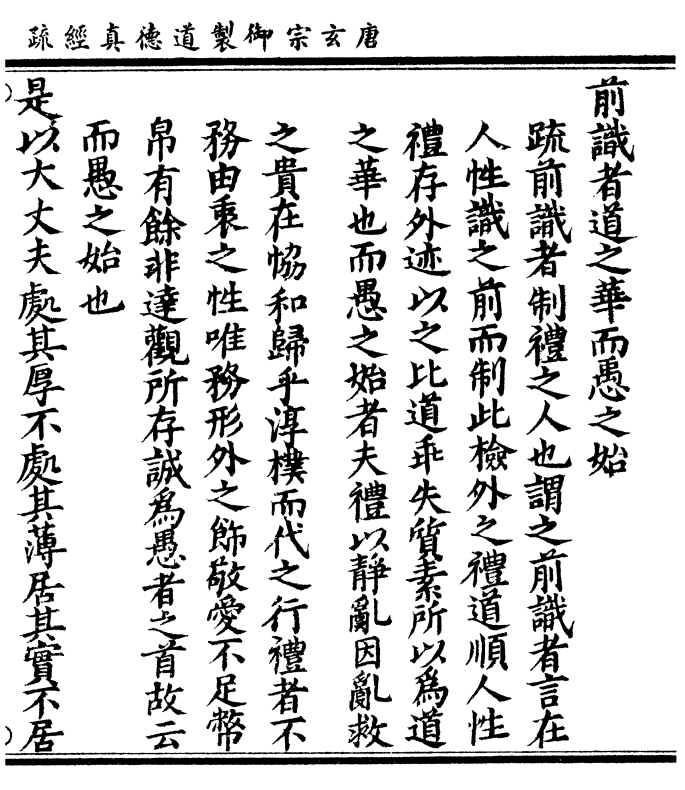 唐玄宗御製道德真經疏
前識者道之華而愚之始
疏前識者制禮之人也謂之前識者言在
人性識之前而制此檢外之禮道順人性
禮存外迹以之比道乖失質素所以為道
之華也而愚之始者夫禮以靜亂因亂救
之貴在恊和歸乎淳樸而代之行禮者不
務由衷之性唯務形外之飾敬愛不足幣
帛有餘非達觀所存誠為愚者之首故云
而愚之始也
是以大丈夫處其厚不處其薄居其實不居